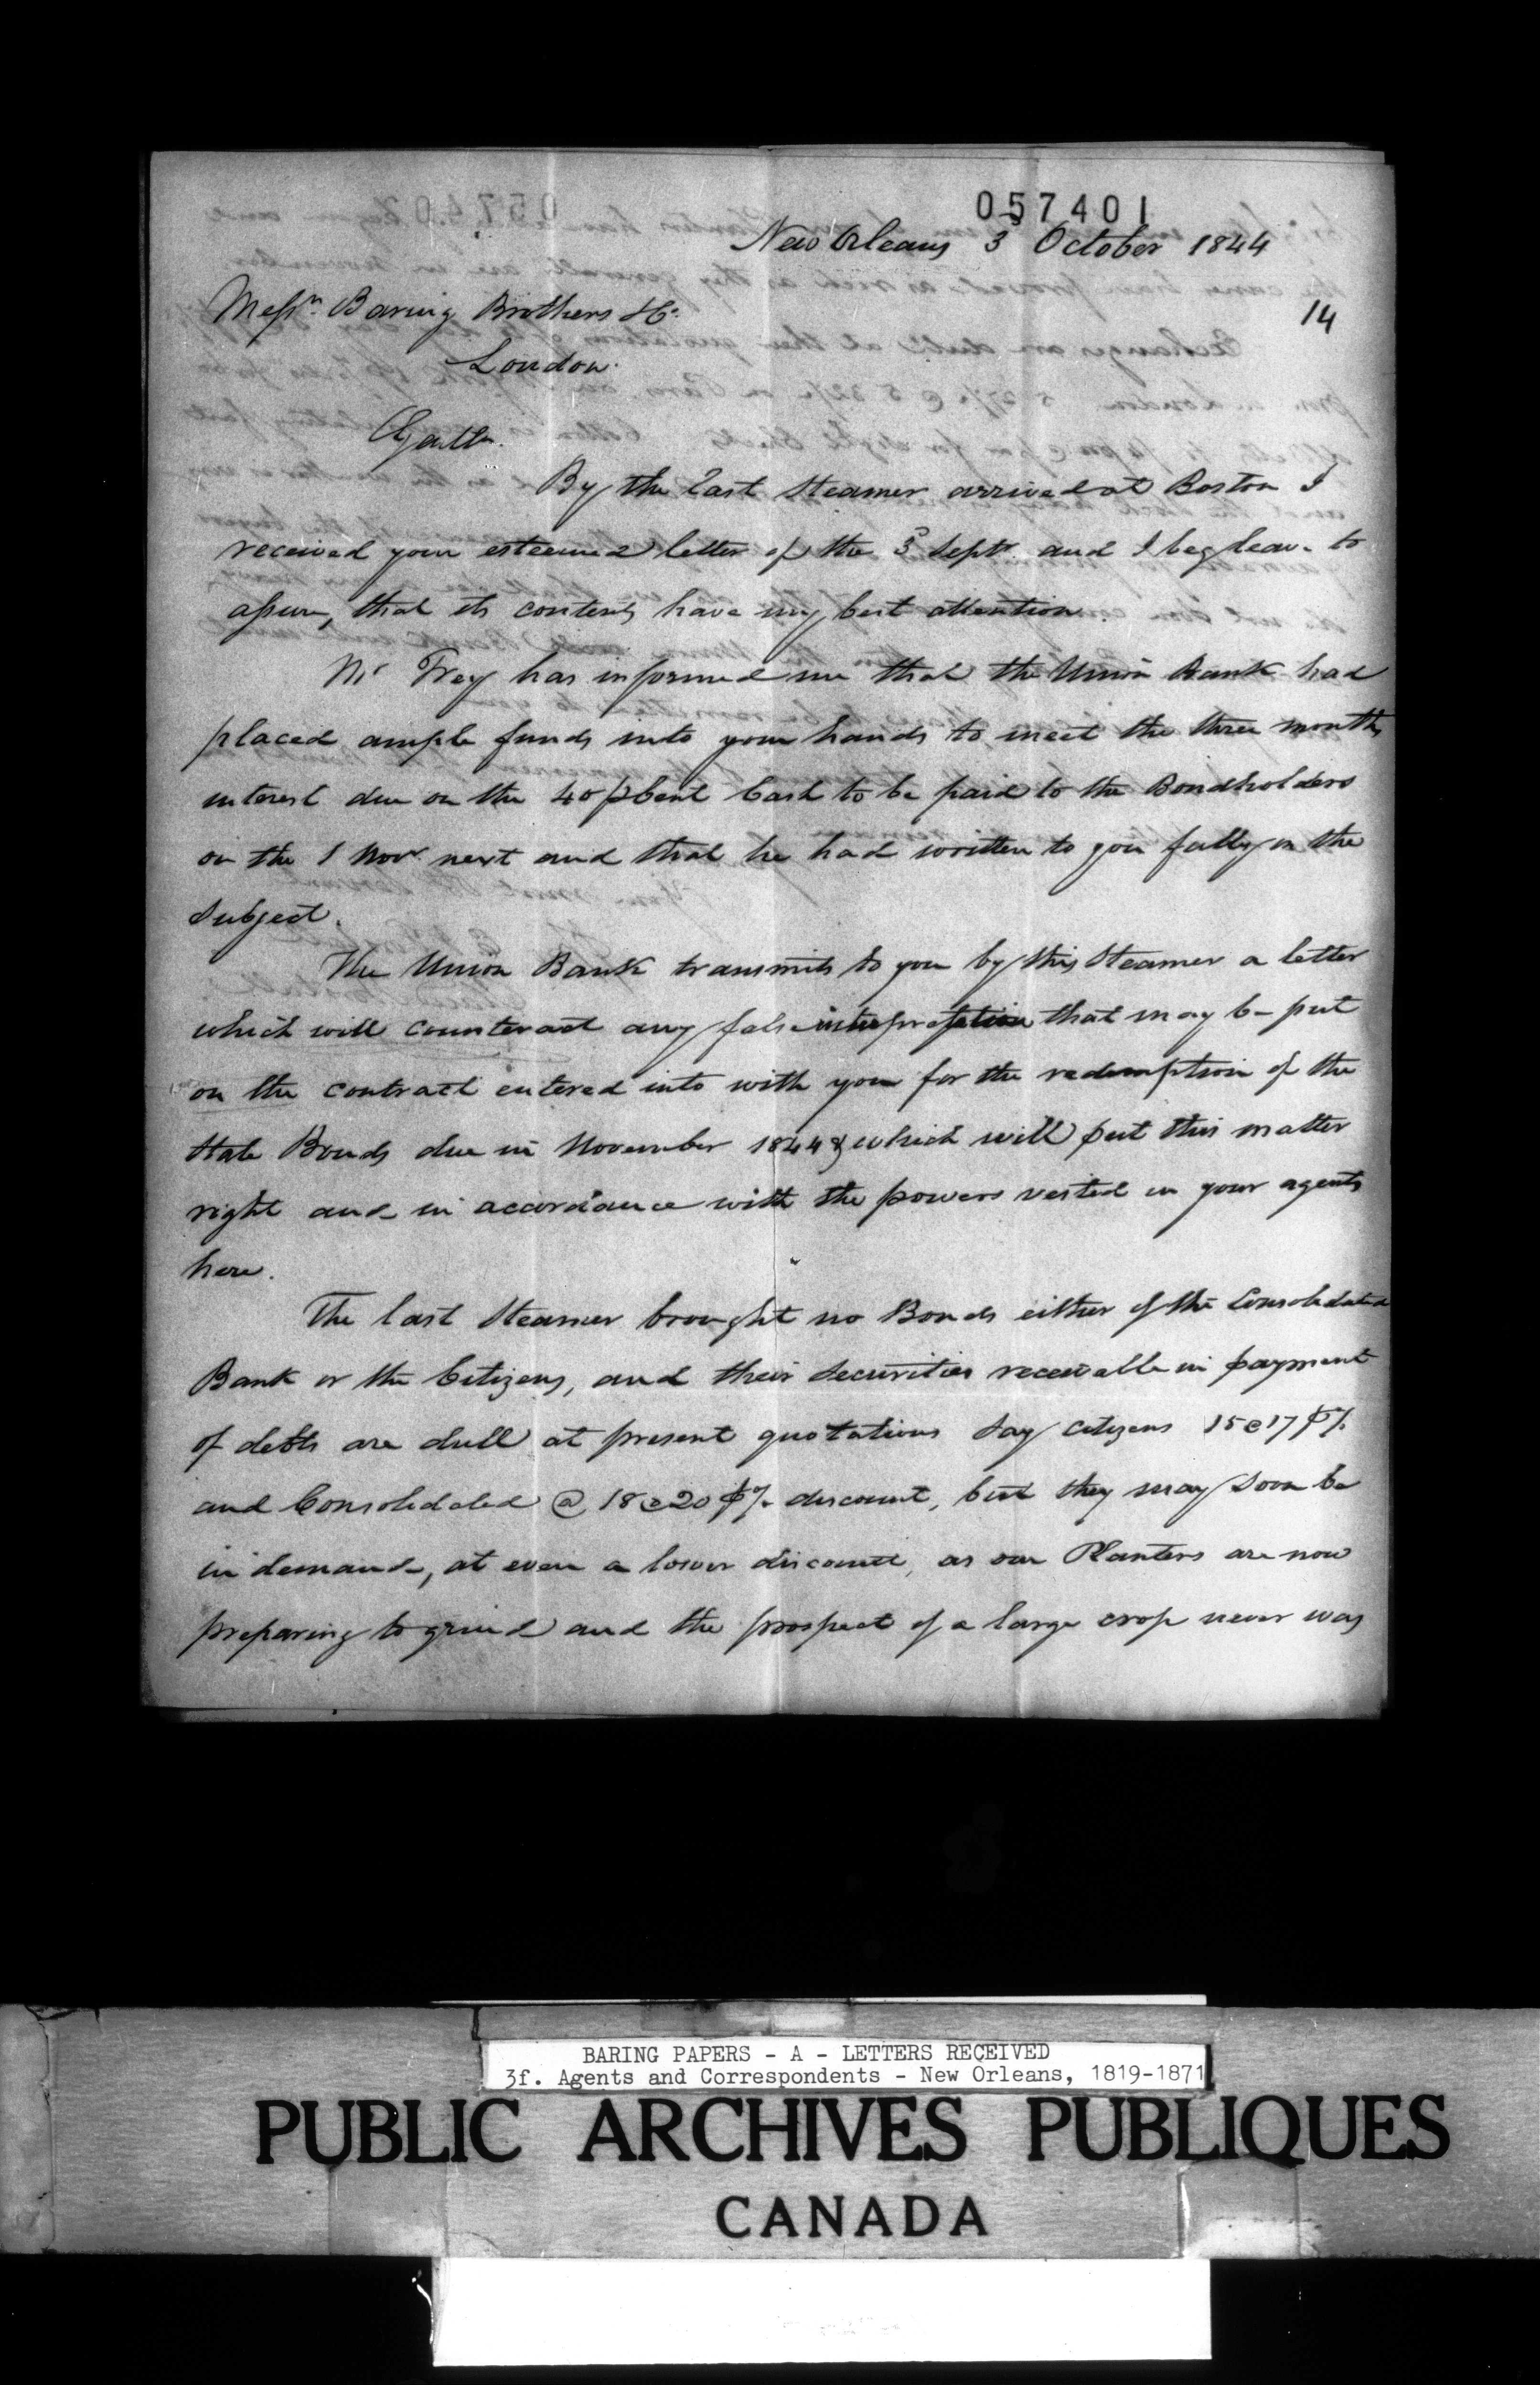 057401
New Orleans 3d October 1844
14
Messrs. Baring Brothers & Co.
London.
Gentln.
By the last Steamer arrived at Boston I
received your esteemed letter of the 3d Sept. and I beg leave to
assure, that its contents have my best attention.
Mr Frey has informed me that the Union Bank had
placed ample funds into your hands to meet the three months
interest due on the 40 p Cent Cash to be paid to the Bondholders
on the 1 Novr next and that he had written to you fully on the
Subject.
The Union Bank transmits to you by this Steamer a letter
which will counteract any false interpretation that may be put
on the contract entered into with you for the redemption of the
State Bonds due in November 1844 & which will put this matter
right and in accordance with the powers vested in your agents
here.
The last Steamer brought no Bonds either of the Consolidated
Bank or the Citizens, and their Securities receivable in payment
of debts are dull at present quotations Say Citizens 15@17 p%
and Consolidated @ 18@20 p% discount, but they may soon be
in demand, at even a lower discount, as our Planters are now
preparing to grind and the prospect of a large crop never was
BARING PAPERS - A - LETTERS RECEIVED
3f. Agents and Correspondents - New Orleans, 1819-1871
PUBLIC ARCHIVES PUBLIQUES
CANADA